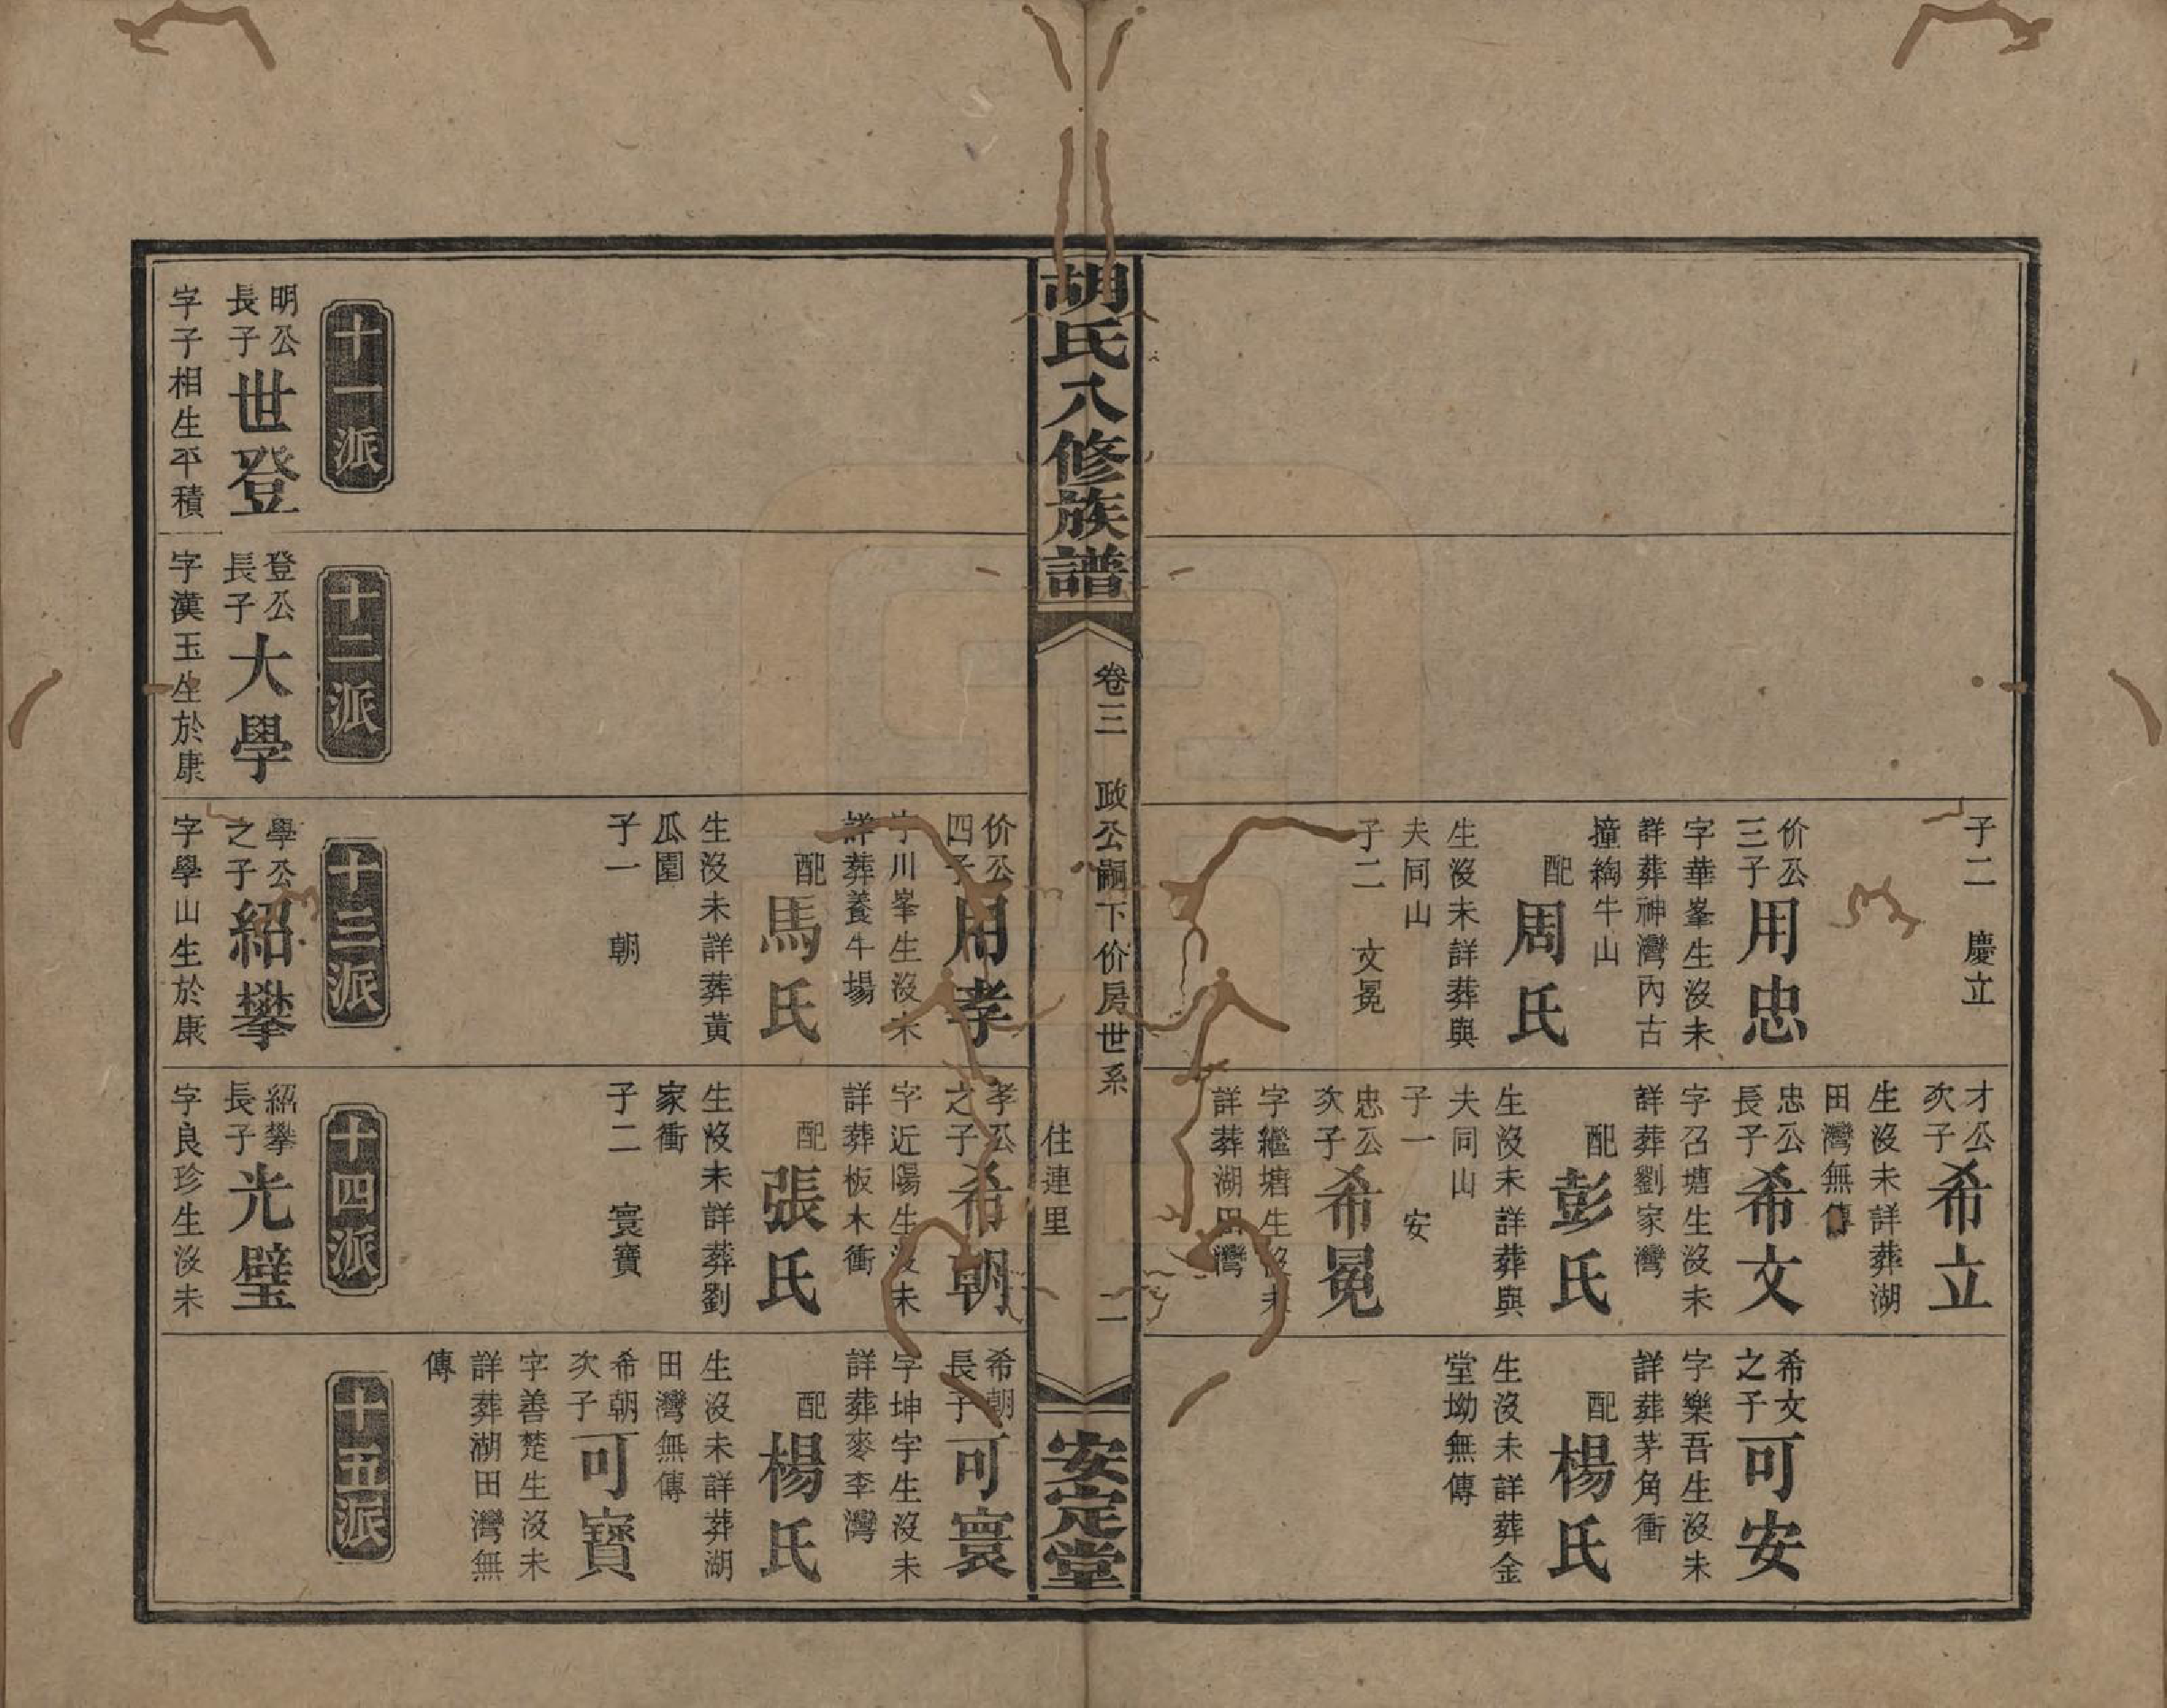 子二　慶立
价公
三子
用忠
字華峯生沒未
詳葬神灣內古
撞綯牛山
配
周氏
生沒未詳葬與
夫同山
子二　文冕
才公
次子
希立
生沒未詳葬湖
田灣無傳
忠公
長子
希文
字召塘生沒未
詳葬劉家灣
配
彭氏
生沒未詳葬與
夫同山
子一　安
忠公
次子
希冕
字繼塘生沒未
詳葬湖田灣
希文
之子
可安
字樂吾生沒未
詳葬茅角衝
配
楊氏
生沒未詳葬金
堂坳無傳
胡氏八修族譜
卷三　政公嗣下价房世系　二
住連里
安定堂
价公
四子
用孝
字川峯生沒未
詳葬養牛場
配
馬氏
生沒未詳葬黃
瓜園
子一　朝
孝公
之子
希朝
字近陽生沒未
詳葬板木衝
配
張氏
生沒未詳葬劉
家衝
子二　寰寶
希朝
長子
可寰
字坤宇生沒未
詳葬麥李灣
配
楊氏
生沒未詳葬湖
田灣無傳
希朝
次子
可寶
字善楚生沒未
詳葬湖田灣無
傳
十一派
明公
長子
世登
字子相生平積
十二派
登公
長子
大學
字漢玉生於康
十三派
學公
之子
紹攀
字學山生於康
十四派
紹攀
長子
光璧
字良珍生沒未
十五派